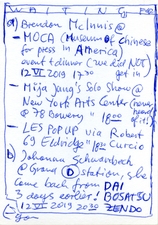 WAITING FOR
a) Brendon McInnis @
- MOCA (Museum of Chinese
for press in America)
event + dinner (we did NOT)
12 VI 2019 17:30 get in
- Miija Jang's Solo Show @
New York Arts Center (never
@ 78 Bowery 18:00 heard of it)
- LES POP UP via Robert
69 Eldridge Curcio
b) Johanna
@ Grand D station, she
came back from DAI
3 days earlier! BOSATSU
12 VI 2019 20:30 ZENDO